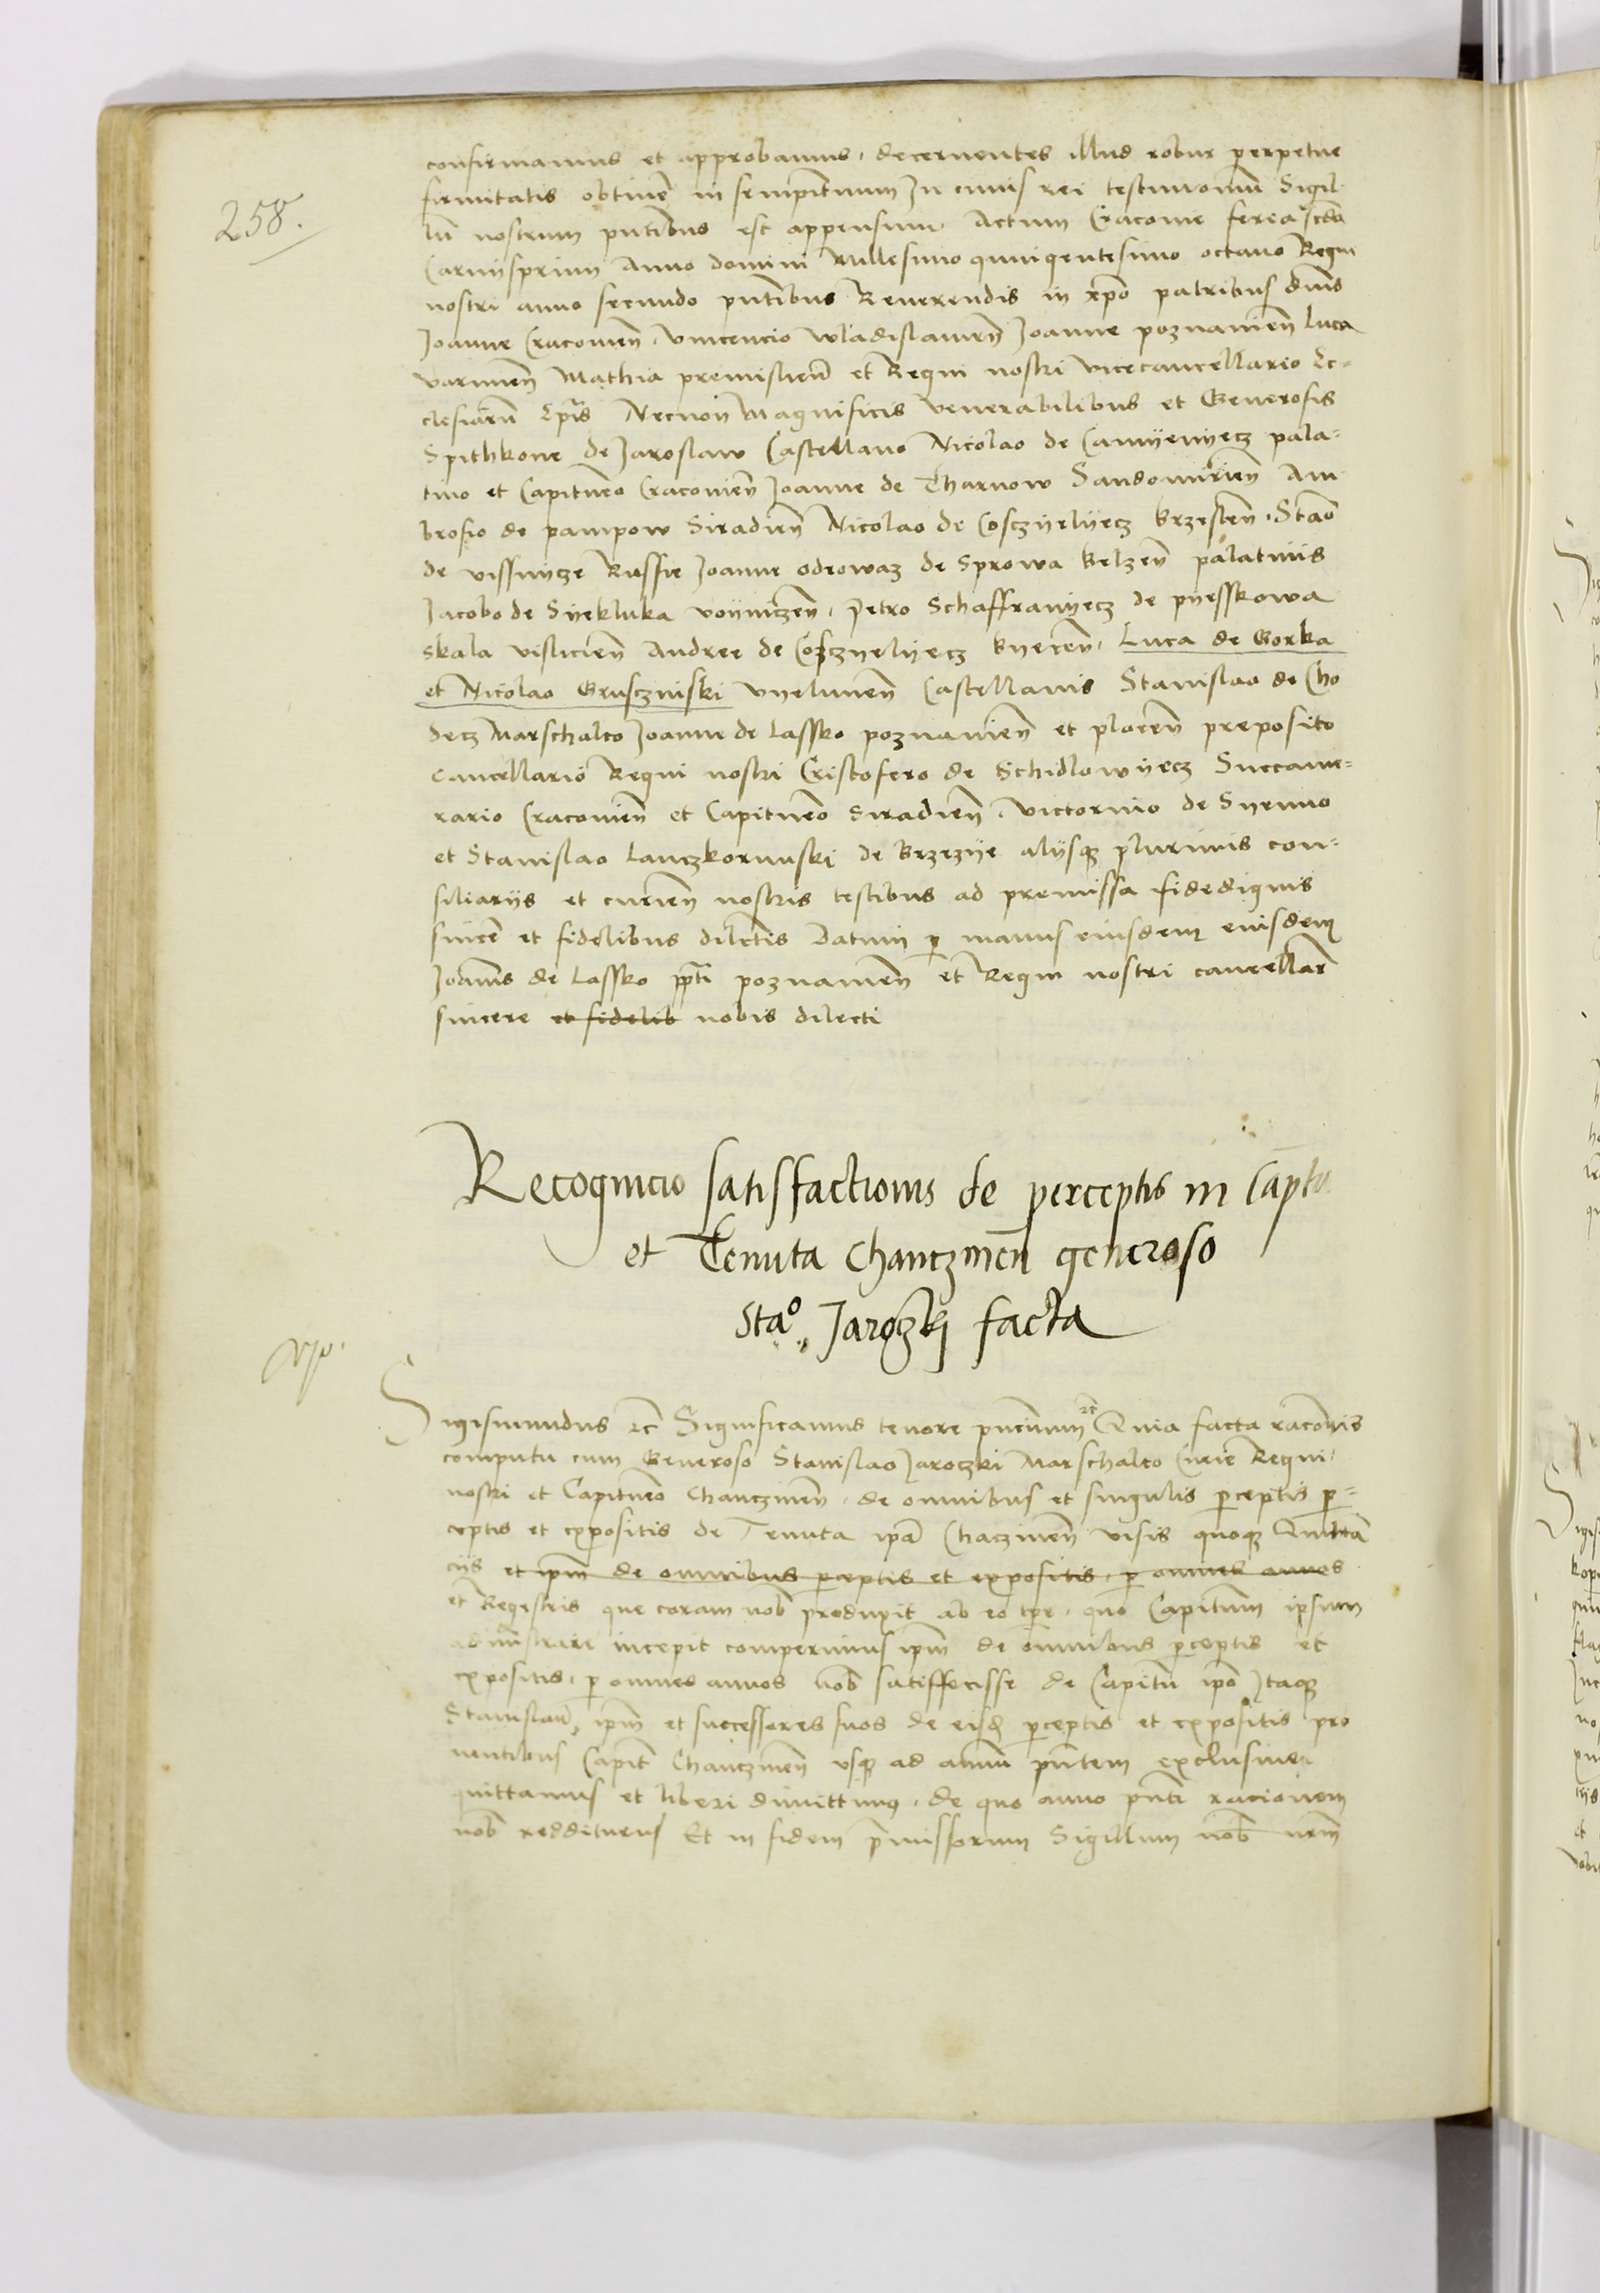 258.
confirmamus et approbamus, decernentes illud robur perpetue
firmitatis obtinē in sempitnum In cuius rei testimoniū Sigil-
lū nostrum pntibus est appensum. Actum Cracovie feria scda
Carnisprivy Anno domini Millesimo quingentesimo octavo Regni
nostri anno secundo pntibus Reverendis in xpo patribus dnis
Joanne Cracovien̄. Vincencio Wladislavien̄ Joanne poznanien̄ Luca
varmien̄ Mathia premislien̄ et Regni nostri vicecancellario Ec-
clesiarū Ep̄is Necnon Magnificis venerabilibus et Generosis
Spithkone de Jaroslaw Castellano Nicolao de Camyenyecz pala-
tino et Capitneo Cracovien̄ Joanne de Tharnow Sandomirien̄ Am
brosio de pampow Siradien̄ Nicolao de Cosczyelyecz Brzesten̄. Stāo
de vissnycze Russie Joanne odrowaz de Sprowa Belzen̄ palatinis
Jacobo de Syekluka voyniczen̄. Petro Schaffranyecz de pyesskowa
skala visliccien̄ Andrea de Cosczyelyecz Byecen̄. Luca de Gorka
et Nicolao Grusczinski vyelunen̄ Castellanis Stanislao de Cho
decz Marschalco Joanne de Lassko poznanien̄ et plocen̄ preposito
Cancellario Regni nostri Cristofero de Schidlowyecz Succame-
rario Cracovien̄ et Capitneo Siradien̄. Victorino de Syenno
et Stanislao Lanczkorunski de Brzezye alysqz plurimis con-
siliarys et curien̄ nostris testibus ad premissa fidedignis
sincē et fidelibus dilctis Datum p manus eiusdem eiusdem
Joānis de Lassko ppti poznanien̄ et Regni nostri cancellar̄
sincere et fidelib nobis dilecti
Recognicio satisfactionis de perceptis in Capto
et Tenuta Chanczinen̄ generoso
Staᵒ Jaroczki facta
Sigismundus rc̄ Significamus tenore pncium rc̄ Quia facta racōnis
computu cum Generoso Stanislao Jaroczki Marschalco Curie Regni
nostri et Capitneo Chanczinen̄. de omnibus et singulis pceptis p-
ceptis et expositis de Tenuta ip̄a Chaczinen̄ visis quoqz Quittā
ciis et ip̄m de omnibus pceptis et expositis. p omnes annos
et Regestris que coram nob̄ produxit ab eo tpr. quo Capitnm ipsum
administrare incepit comperimus ip̄m de omnibus pceptis et
expositis. p omnes annos nob̄ satisfecisse de Capitū ip̄o Itaqz
Stanislaū ip̄m et successores suos de eisd̄ pceptis et expositis pro
ventibus Capit̄ Chanczinen̄ usqz ad annū pn̄tem exclusive
quittamus et liberi dimittimus. de quo anno pn̄ti racionem
nob̄ redditurus Et in fidem pmissorum Sigillum nob̄ nr̄m